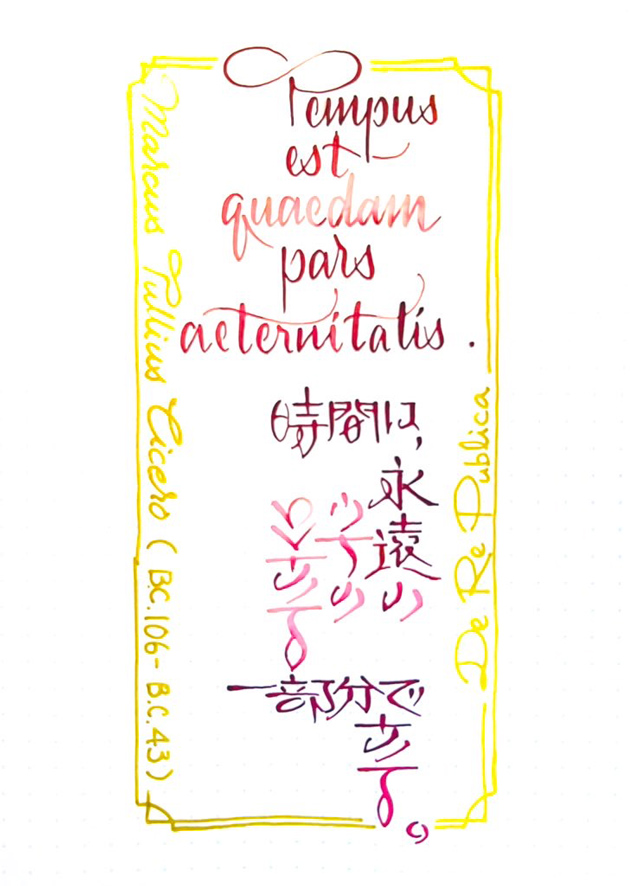 Tempus
est
quaedam
pars
aeternitatis.
時間は、
永遠の
うちの
とある
一部分で
ある。
Marcus Tullius Cicero (B.C.106-B.C.43)
De Re Publica